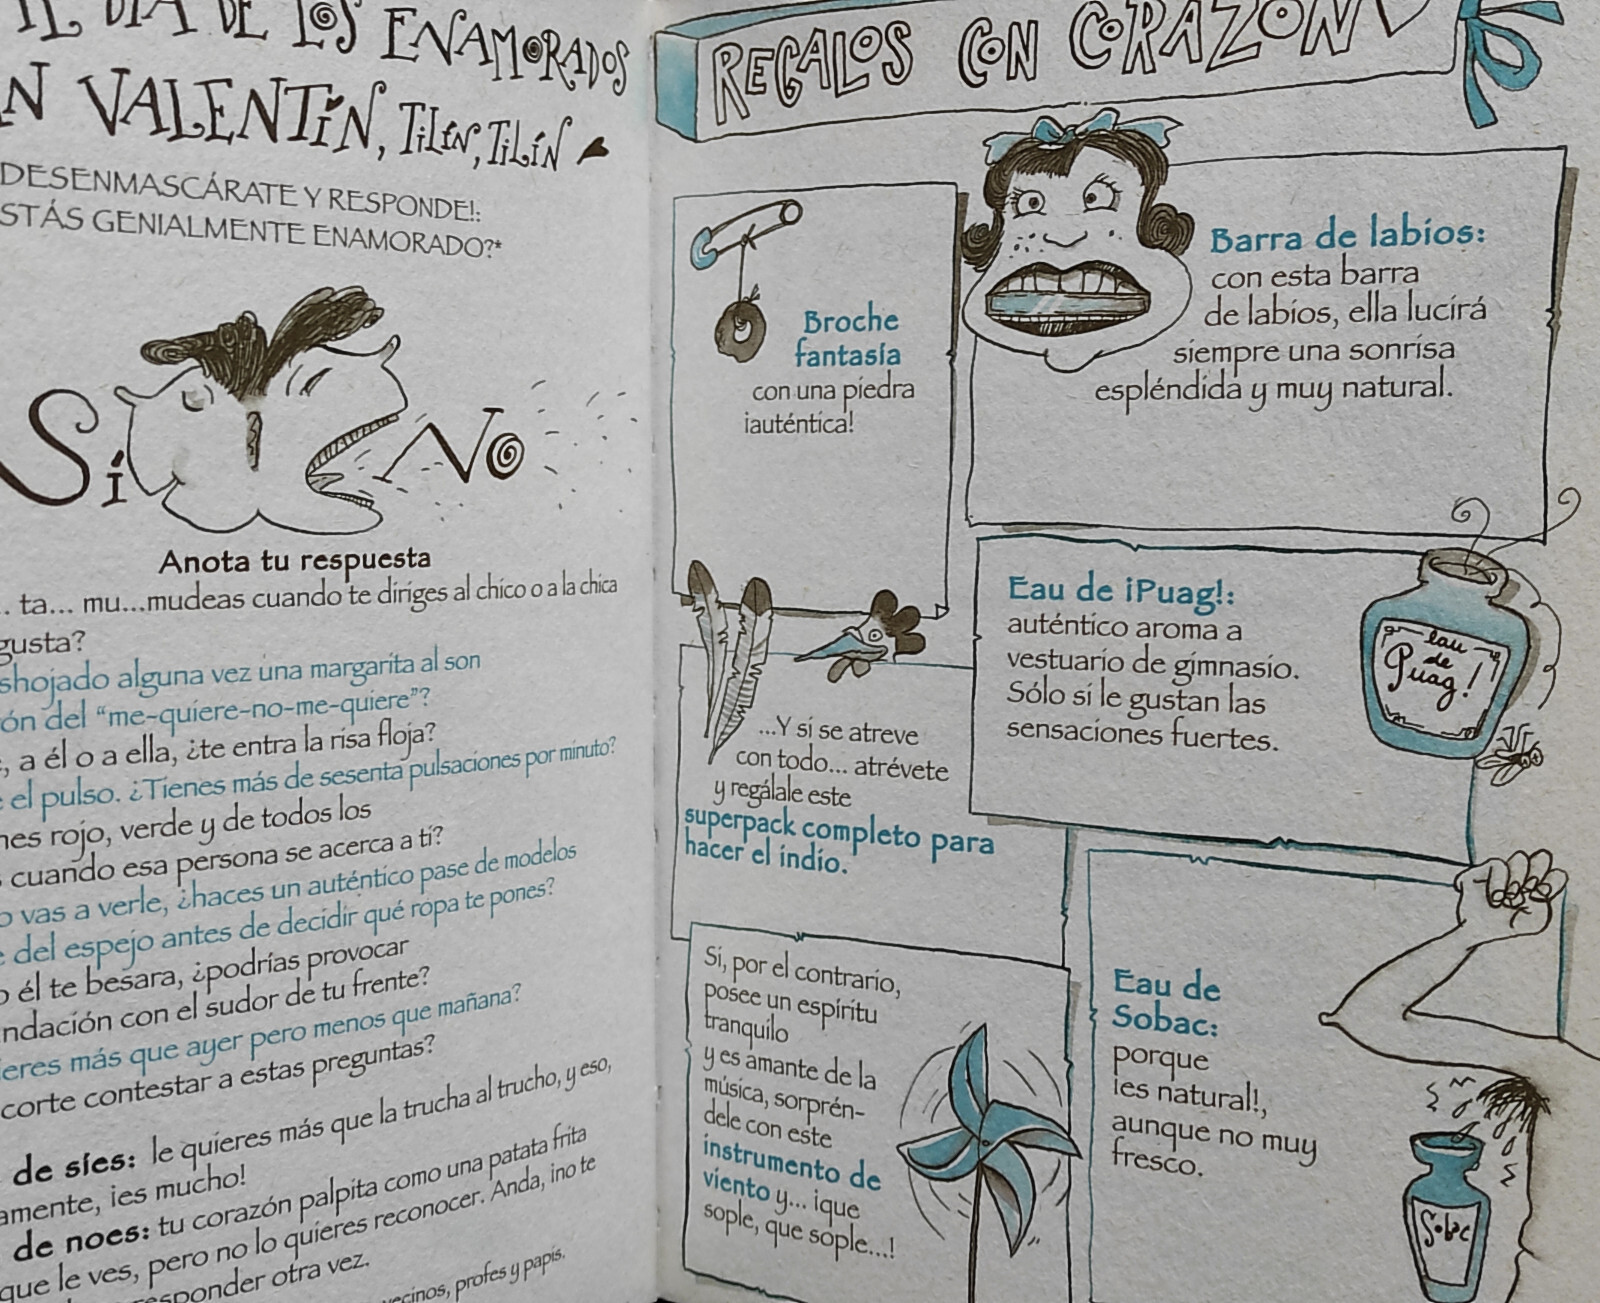 EL DÍA DE LOS ENAMORADOS
VALENTÍN, TILÍN, TILÍN
DESENMASCÁRATE Y RESPONDE!:
STÁS GENIALMENTE ENAMORADO?*
Sí No
Anota tu respuesta
.. ta... mu...mudeas cuando te diriges al chico o a la chica
gusta?
shojado alguna vez una margarita al son
ón del “me-quiere-no-me-quiere”?
, a él o a ella, ¿te entra la risa floja?
el pulso. ¿Tienes más de sesenta pulsaciones por minuto?
nes rojo, verde y de todos los
cuando esa persona se acerca a ti?
o vas a verle, ¿haces un auténtico pase de modelos
del espejo antes de decidir qué ropa te pones?
o él te besara, ¿podrías provocar
ndación con el sudor de tu frente?
ieres más que ayer pero menos que mañana?
corte contestar a estas preguntas?
de síes: le quieres más que la trucha al trucho, y eso,
amente, ¡es mucho!
de noes: tu corazón palpita como una patata frita
que le ves, pero no lo quieres reconocer. Anda, ¡no te
responder otra vez.
vecinos, profes y papis.
REGALOS CON CORAZÓN
Broche
fantasía
con una piedra
¡auténtica!
Barra de labios:
con esta barra
de labios, ella lucirá
siempre una sonrisa
espléndida y muy natural.
Eau de ¡Puag!:
auténtico aroma a
vestuario de gimnasio.
Sólo si le gustan las
sensaciones fuertes.
eau
de
Puag!
...Y si se atreve
con todo... atrévete
y regálale este
superpack completo para
hacer el indio.
Si, por el contrario,
posee un espíritu
tranquilo
y es amante de la
música, sorprén-
dele con este
instrumento de
viento y... ¡que
sople, que sople...!
Eau de
Sobac:
porque
¡es natural!,
aunque no muy
fresco.
Sobac